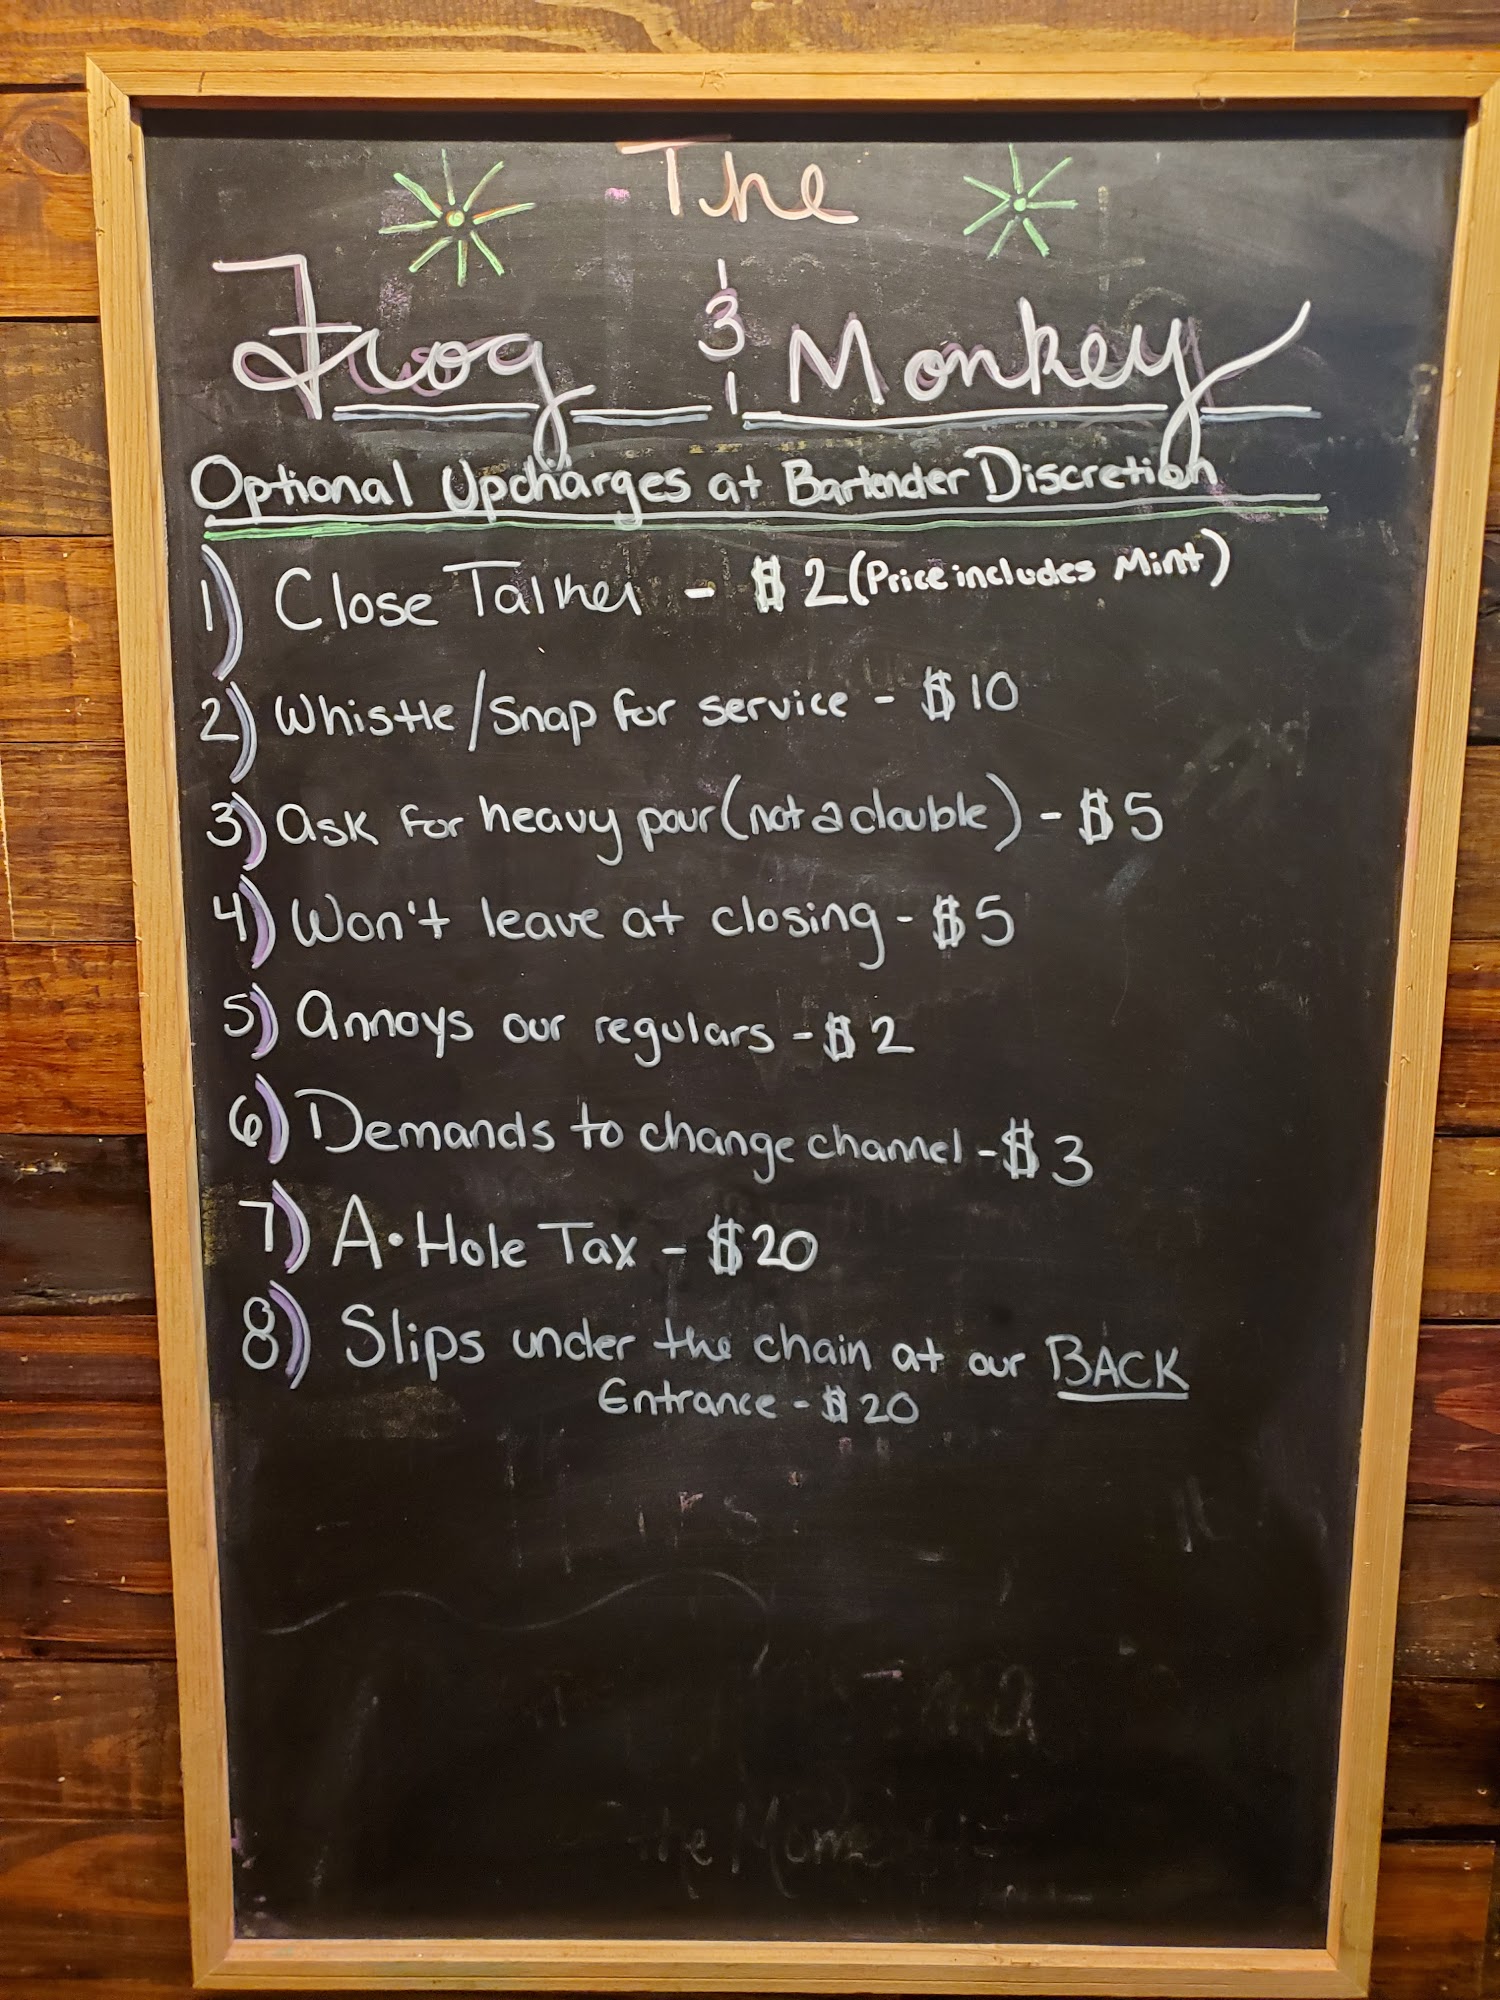 The
Frog & Monkey
Optional Upcharges at Bartender Discretion
1) Close Talker - $2 (Price includes Mint)
2) Whistle/Snap for service - $10
3) ask for heavy pour (not a double) - $5
4) Won't leave at closing - $5
5) Annoys our regulars - $2
6) Demands to change channel - $3
7) A•Hole Tax - $20
8) Slips under the chain at our BACK
Entrance - $20